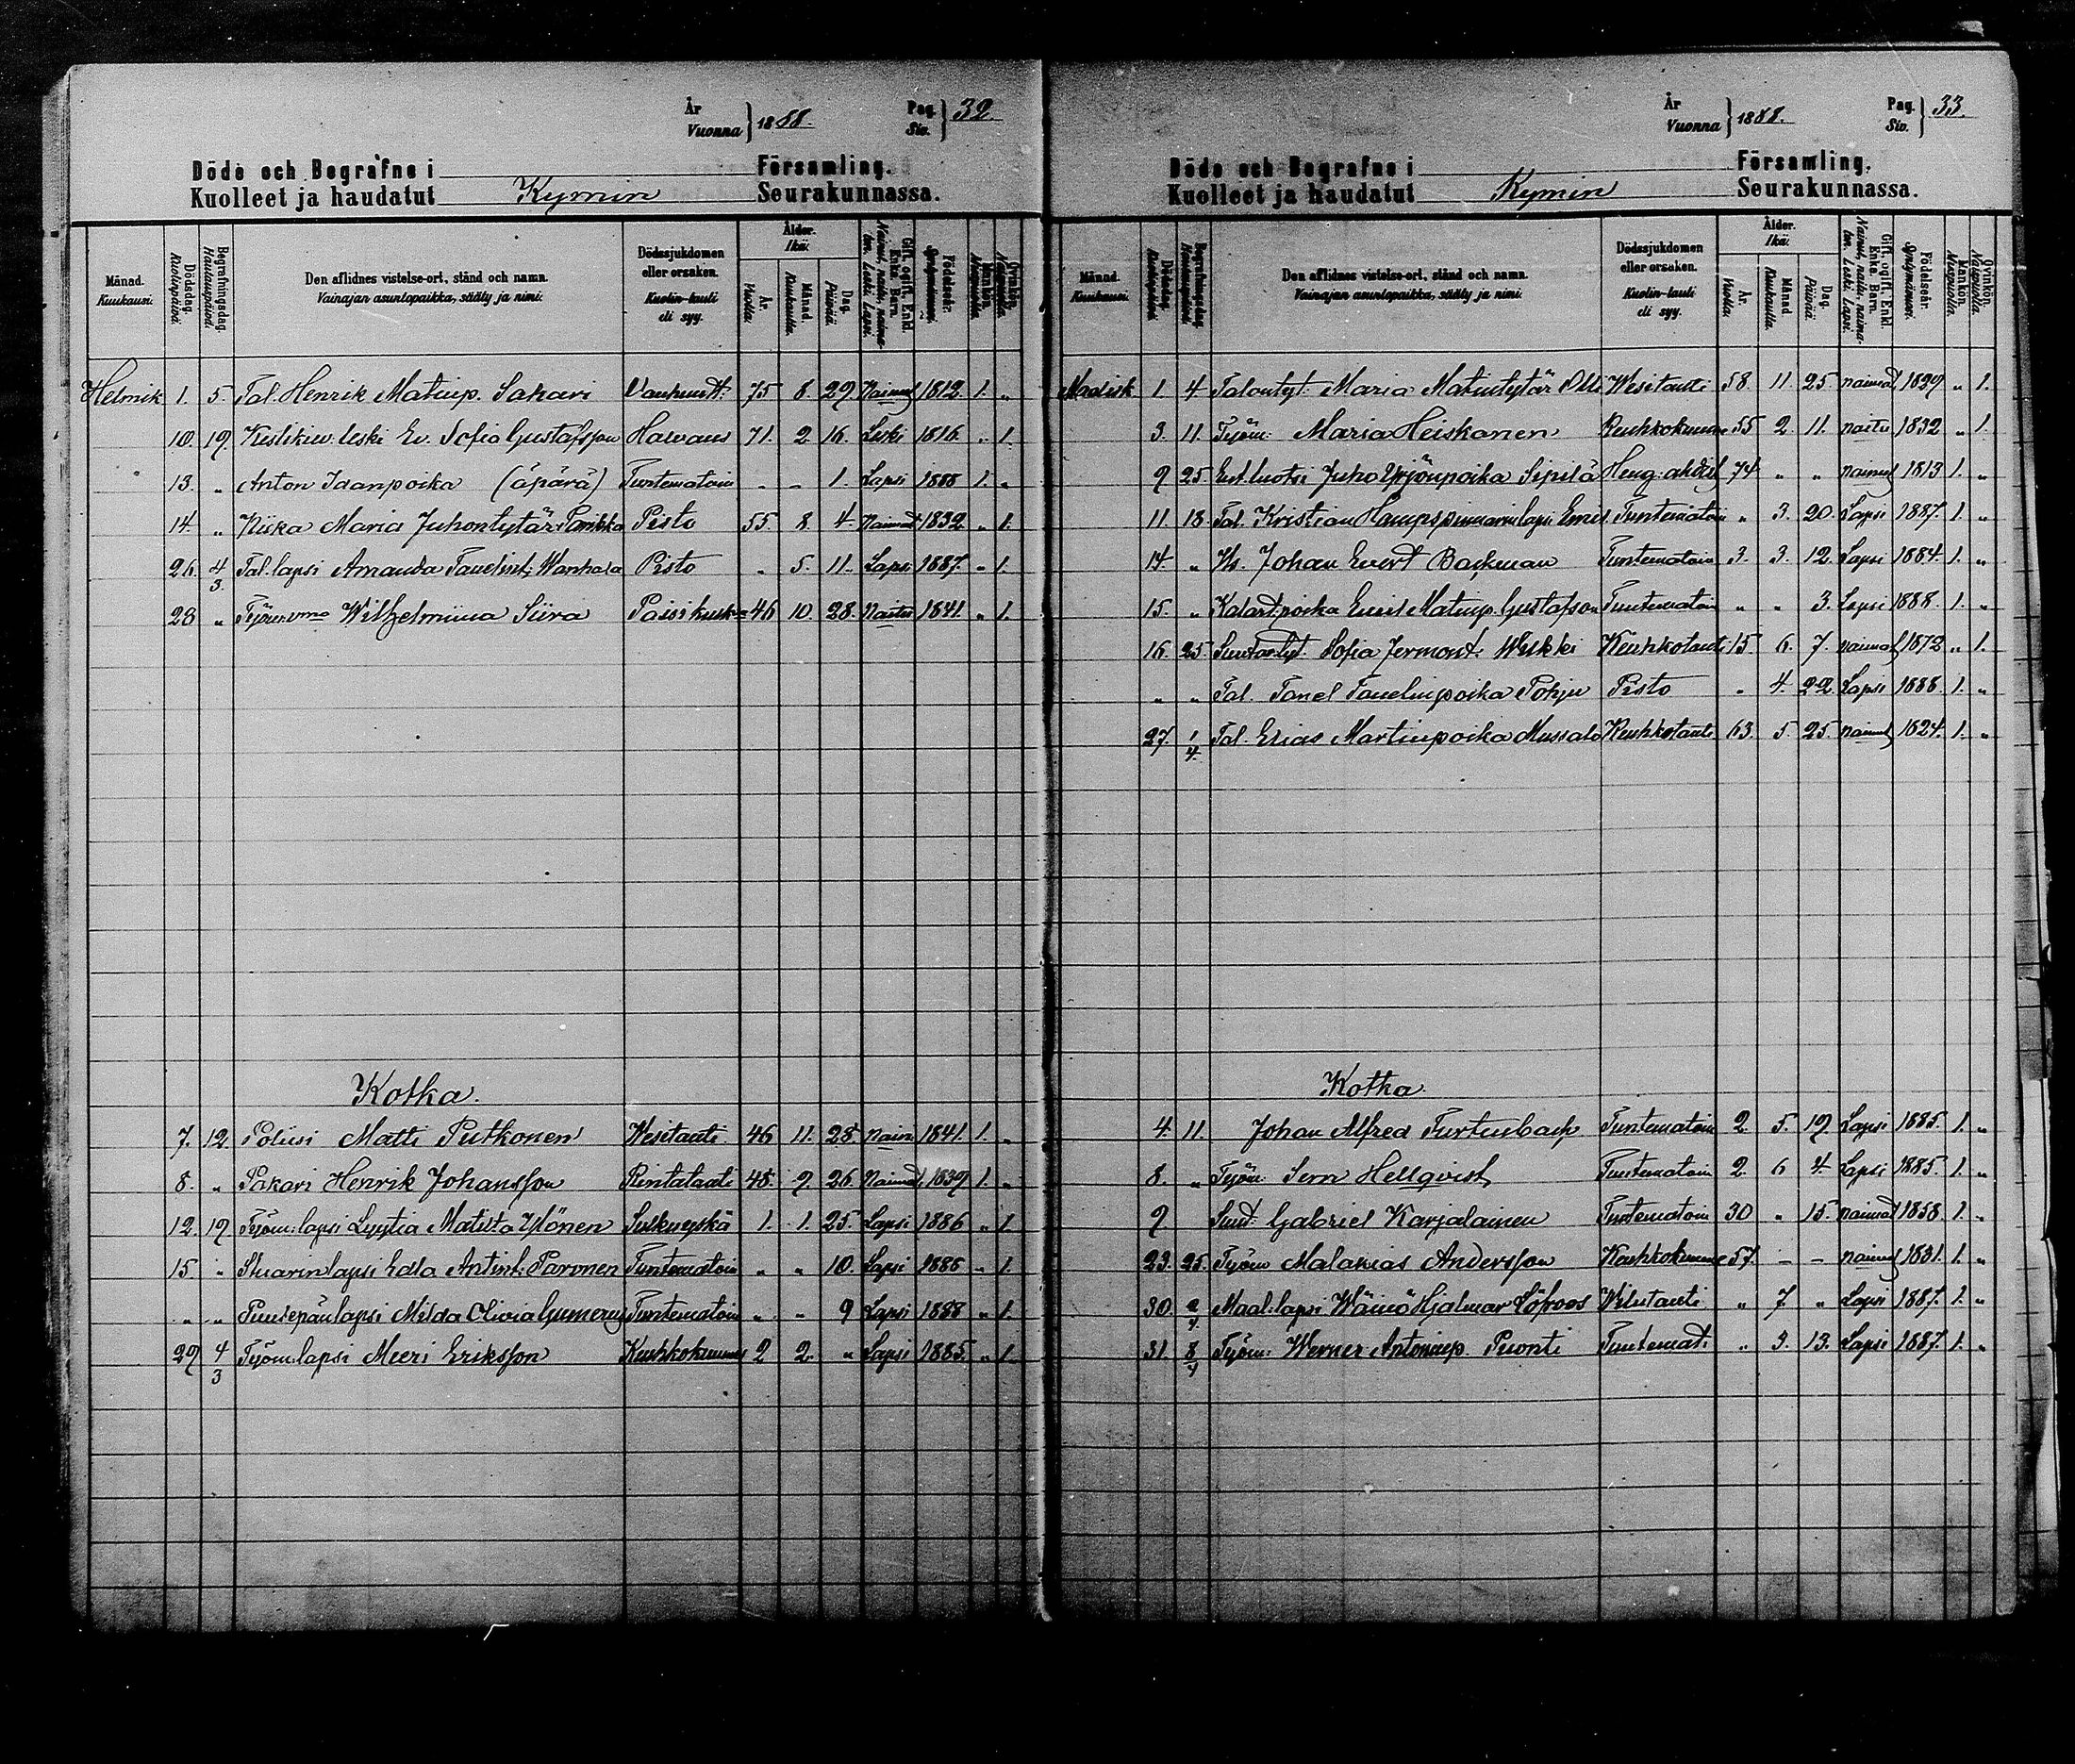 År
Vuonna } 1888. Pag. Siv. } 32.
Döde och Begrafne i Församling.
Kuolleet ja haudatut Kymin Seurakunnassa.
Månad. Kuukausi. Dödsdag. Kuolinpäivä. Begrafningsdag. Hautauspäivä. Den aflidnes vistelse-ort, stånd och namn. Vainajan asuntopaikka, sääty ja nimi. Dödssjukdomen eller orsaken. Kuolin-tauti eli syy. Ålder. Ikä. År. Vuotta. Månad. Kuukautta. Dag. Päivää. Gift, ogift, Enkl. Enka. Barn. Födelseår. Syntymävuosi. Mankön. Miespuolia. Qvinkön. Naispuolia.
Helmik 1. 5. Tal. Henrik Matinp. Sakari 75 8. 29 Naimut 1812. 1. „
10. 19. Leski Ev. Sofia Gustafsson Halvaus 71. 2 16. Leski 1816. „ 1.
13. „ Anton Idanpoika (äpärä) Tuntematoin - - 1. Lapsi 1888 1. „
14. „ Maria Juhontytär Parikka Pisto 55. 8. 4. Naimut 1832 „ 1.
26. 4/3. Tal. lapsi Amanda Taavetint. Wanhala Pisto „ 5. 11. Lapsi 1887. „ 1.
28 „ Wilhelmiina Siira 46 10. 28. 1841. „ 1.
Kotka.
7. 12. Poliisi Matti Putkonen Wesitauti 46 11. 28. Naim 1841. 1. „
8. „ Pakari Henrik Johansson Rintatauti 48. 9. 26. Naimat. 1839 1. „
12. 19 Työm. lapsi Lyytia Matilta Ylönen 1. 1. 25. Lapsi 1886 „ 1.
15. „ lapsi Edla Antint. Paronen Tuntematoin „ „ 10. Lapsi 1888 „ 1.
„ „ Puusepänlapsi Milda Olivia Tuntematoin „ „ 9 Lapsi 1888 „ 1.
29 4/3 Työm. lapsi Meeri Eriksson Keuhkokuume 2 2. „ Lapsi 1885. „ 1.
År
Vuonna } 1888. Pag. Siv. } 33.
Döde och Begrafne i Församling.
Kuolleet ja haudatut Kymin Seurakunnassa.
Månad. Kuukausi. Dödsdag. Kuolinpäivä. Begrafningsdag. Hautauspäivä. Den aflidnes vistelse-ort, stånd och namn. Vainajan asuntopaikka, sääty ja nimi. Dödssjukdomen eller orsaken. Kuolin-tauti eli syy. Ålder. Ikä. År. Vuotta. Månad. Kuukautta. Dag. Päivää. Gift, ogift, Enkl. Enka. Barn. Födelseår. Syntymävuosi. Mankön. Miespuolia. Qvinkön. Naispuolia.
Maalisk 1 4 Talontyt. Maria Matintytär Olli Wesitauti 58. 11. 25 naimat. 1829 „ 1.
3. 11. Työm. Maria Heiskanen Keuhkokuume 55 2. 11. naitu 1832 „ 1.
9 25. Ent. luotsi Juho Yrjönpoika Sipilä Heng. ahdist 74 „ „ naimut 1813 1. „
11. 18. Tal. Kristian lapsi Emil Tuntematoin „ 3. 20. Lapsi 1887. 1. „
14. „ Johan Evert Backman Tuntematoin 3. 3. 12. Lapsi 1884. 1. „
15. „ poika Emil Matinp. Gustafson Tuntematoin „ „ 3. Lapsi 1888. 1. „
16. 25. Sofia Jermont. Wilkki Keuhkotauti 15. 6. 7. naimat. 1872 „ 1.
„ „ Tal. Tanel Tanelinpoika Pohju Pisto „ 4. 22. Lapsi 1888. 1. „
27. 1/4. Tal. Elias Martinpoika Mussalo Keuhkotauti 63. 5. 25. naimut 1824. 1. „
Kotka.
4. 11. Johan Alfred Furtenbach Tuntematoin 2. 5. 19. Lapsi 1885. 1. „
8. „ Työm. Hellqvist Tuntematoin 2 6 4. Lapsi 1885. 1. „
9 Gabriel Karjalainen Tuntematoin 30 „ 15. naimat 1858. 1. „
23. 25. Työm Malakias Andersson Keuhkokuume 57. - - naimut 1831. 1. „
30. 2/4 Maal. lapsi Wäinö Hjalmar Löfroos „ 7 „ Lapsi 1887. 1. „
31. 8/4 Työm. Werner Antoninp. Puonti Tuntemat. „ 3. 13. Lapsi 1887. 1. „